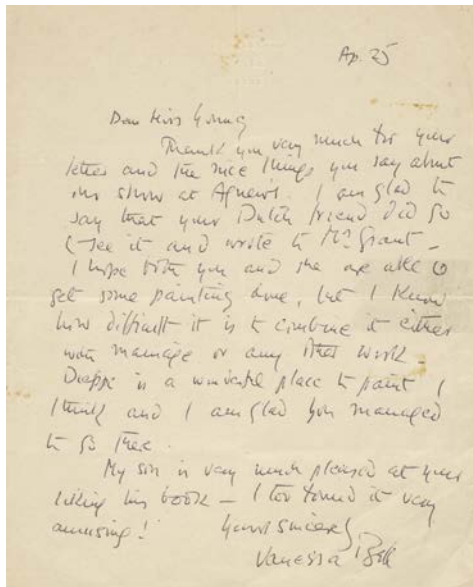 Ap. 25
Dear Miss Young
Thank you very much for your
letter and the nice things you say about
our show at Agnew's. I am glad to
say that your Dutch friend did go
to see it and wrote to Mr Grant –
I hope both you and she are able to
get some painting done, but I know
how difficult it is to combine it either
with marriage or any other work –
Dieppe is a wonderful place to paint I
think and I am glad you managed
to go there.
My son is very much pleased at your
liking his book – I too found it very
amusing!
Yours sincerely
Vanessa Bell